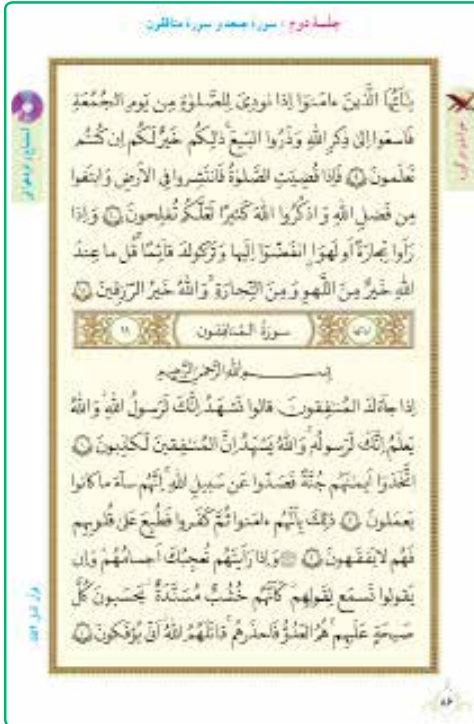 جلسهٔ دوم : سورهٔ جمعه و سورهٔ منافقون
یٰۤاَیُّهَا الَّذینَ ءامَنوۤا اِذا نودِیَ لِلصَّلوٰةِ مِن یَومِ الجُمُعَةِ
فَاسعَوا اِلیٰ ذِکرِ اللّٰهِ وَ ذَرُوا البَیعَ ۚ ذٰلِکُم خَیرٌ لَکُم اِن کُنتُم
تَعلَمونَ ۹ فَاِذا قُضِیَتِ الصَّلوٰةُ فَانتَشِروا فِی الاَرضِ وَ ابتَغوا
مِن فَضلِ اللّٰهِ وَ اذکُرُوا اللّٰهَ کَثیرًا لَعَلَّکُم تُفلِحونَ ۱۰ وَ اِذا
رَاَوا تِجارَةً اَو لَهوًا انفَضّوۤا اِلَیها وَ تَرَکوکَ قآئِمًا ۚ قُل ما عِندَ
اللّٰهِ خَیرٌ مِنَ اللَّهوِ وَ مِنَ التِّجارَةِ ۚ وَ اللّٰهُ خَیرُ الرّٰزِقینَ ۱۱
سورةُ المُنافِقون
بِسمِ اللّٰهِ الرَّحمٰنِ الرَّحیمِ
اِذا جآءَکَ المُنٰفِقونَ قالوا نَشهَدُ اِنَّکَ لَرَسولُ اللّٰهِ ۗ وَ اللّٰهُ
یَعلَمُ اِنَّکَ لَرَسولُهٗ وَ اللّٰهُ یَشهَدُ اِنَّ المُنٰفِقینَ لَکٰذِبونَ ۱
اِتَّخَذوۤا اَیمٰنَهُم جُنَّةً فَصَدّوا عَن سَبیلِ اللّٰهِ ۚ اِنَّهُم سآءَ ما کانوا
یَعمَلونَ ۲ ذٰلِکَ بِاَنَّهُم ءامَنوا ثُمَّ کَفَروا فَطُبِعَ عَلیٰ قُلوبِهِم
فَهُم لا یَفقَهونَ ۳ وَ اِذا رَاَیتَهُم تُعجِبُکَ اَجسامُهُم ۖ وَ اِن
یَقولوا تَسمَع لِقَولِهِم ۖ کَاَنَّهُم خُشُبٌ مُسَنَّدَةٌ ۖ یَحسَبونَ کُلَّ
صَیحَةٍ عَلَیهِم ۚ هُمُ العَدُوُّ فَاحذَرهُم ۚ قاتَلَهُمُ اللّٰهُ ۖ اَنّیٰ یُؤفَکونَ ۴